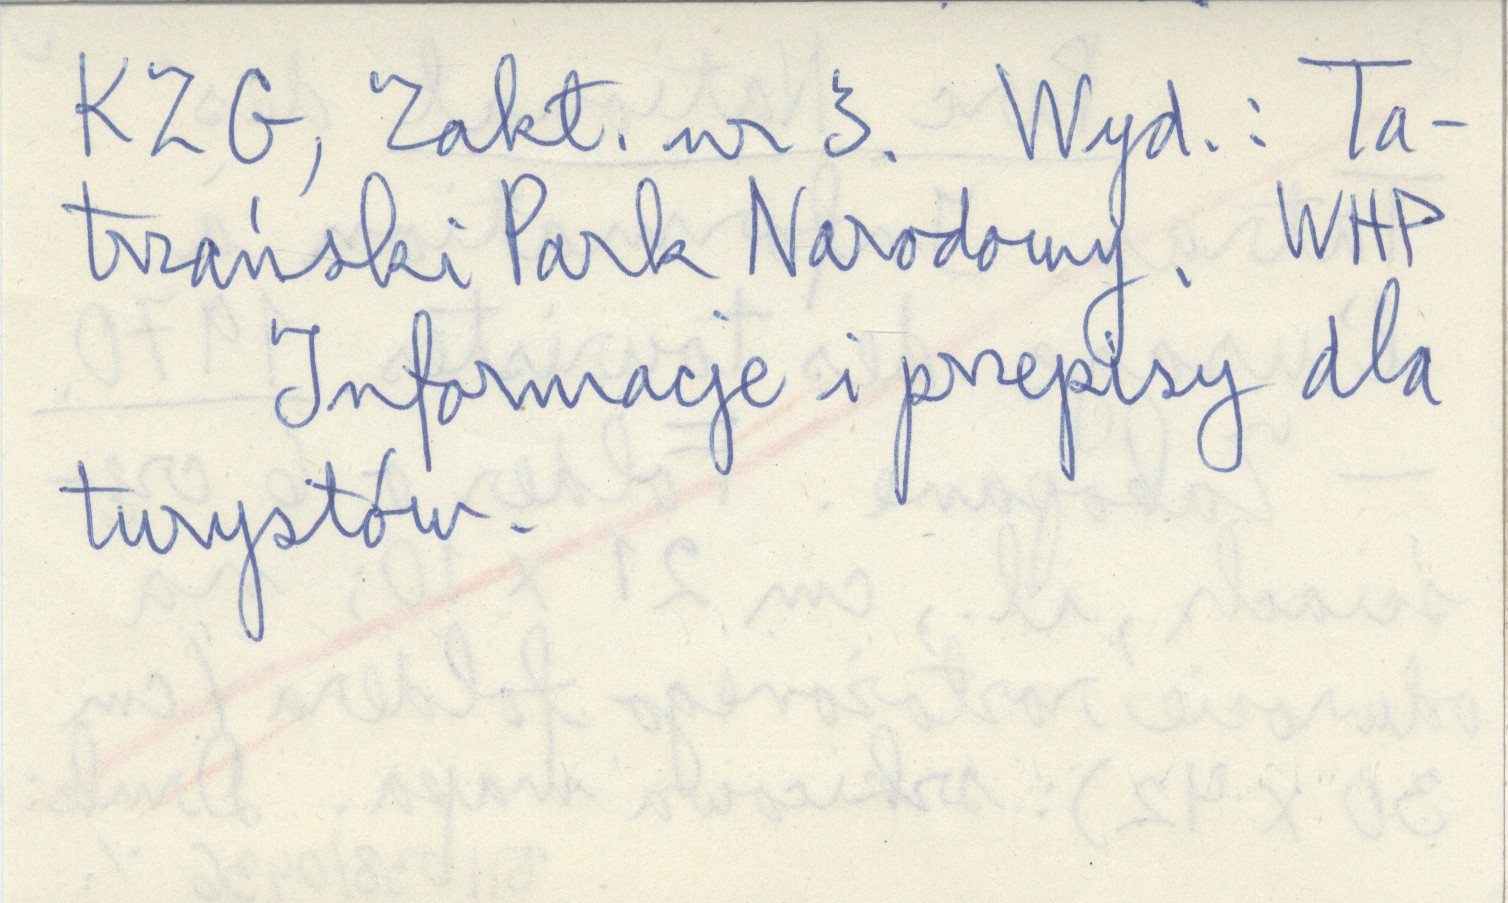 KZG, Zakł. nr 3. Wyd.: Ta-
trzański Park Narodowy. WHP
Informacje i przepisy dla
turystów.